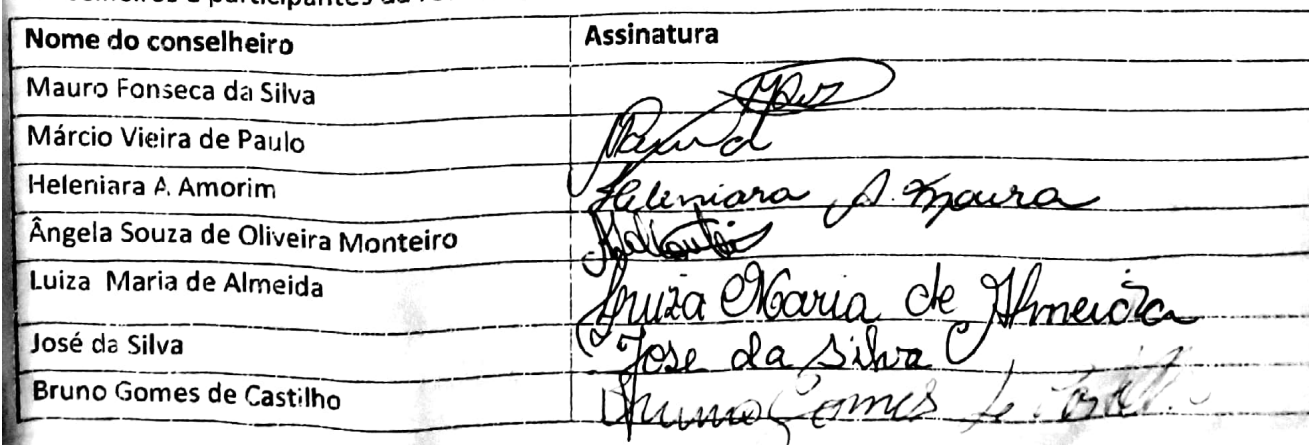 participantes da
Nome do conselheiro Assinatura
Mauro Fonseca da Silva
Márcio Vieira de Paulo
Heleniara A. Amorim Heleniara A. Moura
Ângela Souza de Oliveira Monteiro
Luiza Maria de Almeida Luiza Maria de Almeida
José da Silva Jose da Silva
Bruno Gomes de Castilho Bruno Gomes de